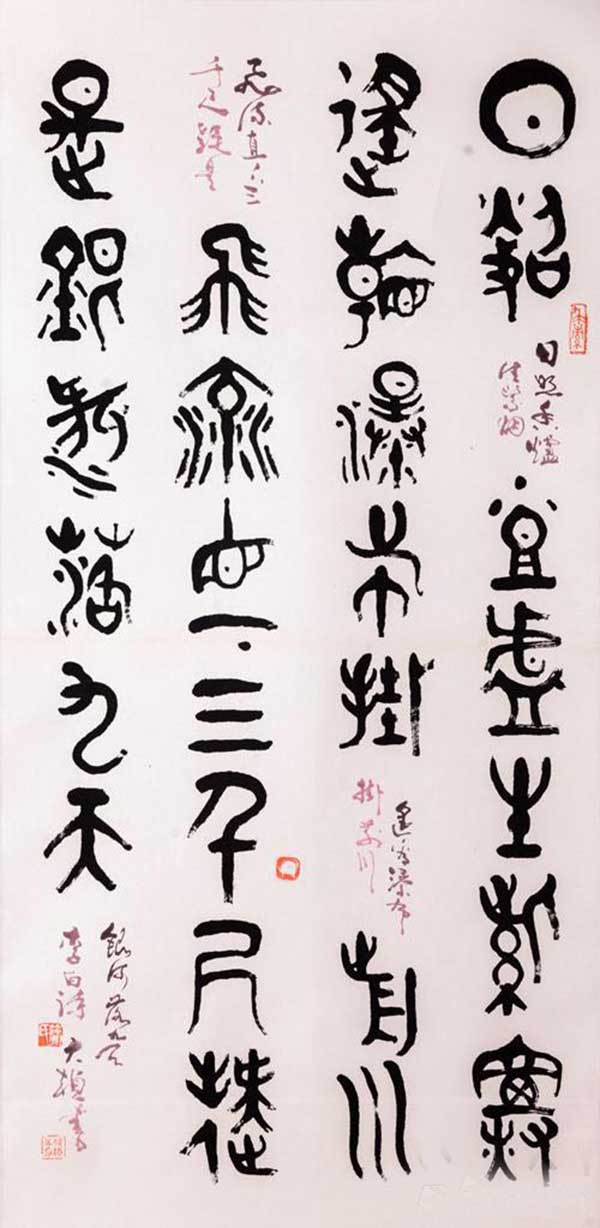 日照
日照香爐
生紫烟
香爐生紫煙
遙看瀑布掛
遙看瀑布
掛前川
前川
飛流直下三
千尺疑是
飛流直下三千尺疑
是銀河落九天
銀河落九天
李白詩